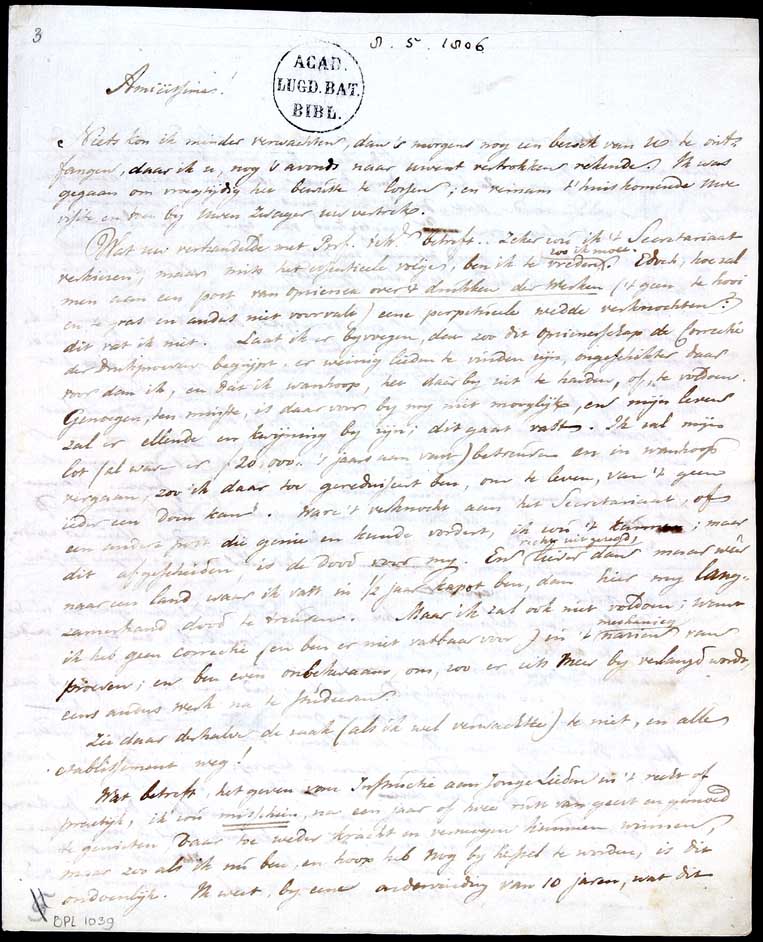 3
8. 5. 1806
ACAD.
LUGD. BAT.
BIBL.
Amicissime!
Niets kon ik minder verwachten, dan 's morgens nog een bezoek van U te ont-
fangen, daar ik u, nog 's avonds naar vertrokken rekende. Ik was
gegaan om vroegtijdig het te ; en vernam t'huis komende Uwe
visite en toen bij Uwen Zwager uw vertrek.
Wat uw verhandelde met Prof. betreft.. Zeker wou ik 't Secretariaat
zoo ik moete
verkiezen; maar mits het essentieele volge, ben ik te vreden. Edoch, hoe zal
men aan een post van opziener over 't drukken der Werken ('t geen te hooi
en te gras en anders niet voorvalt) eene perpetueele wedde verknochten?
dit vat ik niet. Laat ik er byvoegen, dat zoo dit opzienerschap de Correctie
der drukproeven begrijpt, er weinig lieden te vinden zijn, ongeschikter daar
voor dan ik, en dat ik wanhoop, het daar by uit te houden, of, te voldoen.
Genoegen, ten minste, is daar voor my nog niet mogelyk, en mijn leven
zal er ellende en kwijning by zijn; dit gaat vast. Ik zal mijn
lot (al waar er 20,000.. 's jaars aan vast) betreuren en in wanhoop
vergaan, zoo ik daar toe gereduiseert ben, om te leven, van 't geen
ieder een doen kan. Ware 't verknocht aan het Secretariaat, of
een andere post die genie en kunde vordert, ik wou 't ; maar
dit afgescheiden, is de dood voor my. En liever dan maar weêr
naar een land waar ik vast in 1/2 jaar kapot ben, dan hier my lang-
zamerhand dood te treuren. Maar ik zal ook niet voldoen; want
mechanieq
ik heb geen correctie (en ben er niet vatbaar voor) in 't nazien van
proeven; en ben even onbekwaam, om, zoo er iets meer by verlangd wordt,
eens anders werk na te studeeren.
Zie daar derhalve de zaak (als ik wel verwachtte) te niet, en alle
etablissement weg!
Wat betreft, het geven van Instructie aan Jonge Lieden in 't recht of
practijk, ik wou misschien, na een jaar of twee rust van geest en gemoed
te genieten daar toe weder kracht en vermogen kunnen winnen,
maar zoo als ik nu ben, en hoop heb nog by te worden, is dit
ondoenlijk. Ik weet, by eene ondervinding van 10 jaren, wat dit
BPL 1039